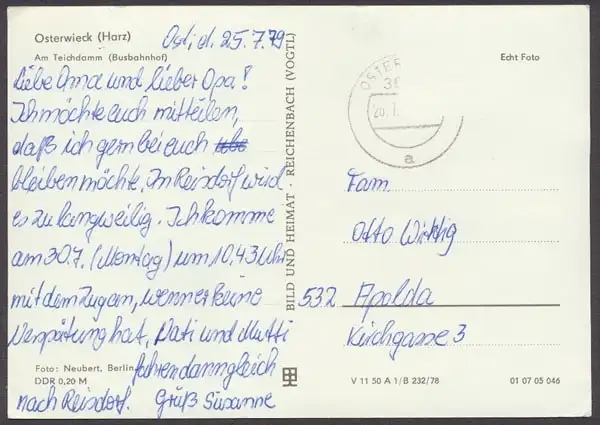 Osterwieck (Harz)
Am Teichdamm (Busbahnhof)
Ost, d. 25.7.79
Liebe Oma und lieber Opa!
Ich möchte euch mitteilen,
daß ich gern bei euch
bleiben möchte. In Reisdorf wird
es zu langweilig. Ich komme
am 30.7. (Montag) um 10.43 Uhr
mit dem Zug an, wenn er keine
Verspätung hat, Vati und Mutti
fahren dann gleich
nach Reisdorf. Gruß Susanne
Foto: Neubert, Berlin
DDR 0,20 M
BILD UND HEIMAT · REICHENBACH (VOGTL)
Echt Foto
OSTER
36
20.7.
a
Fam.
Otto Wittig
532 Apolda
Kirchgasse 3
V 11 50 A 1/B 232/78
01 07 05 046